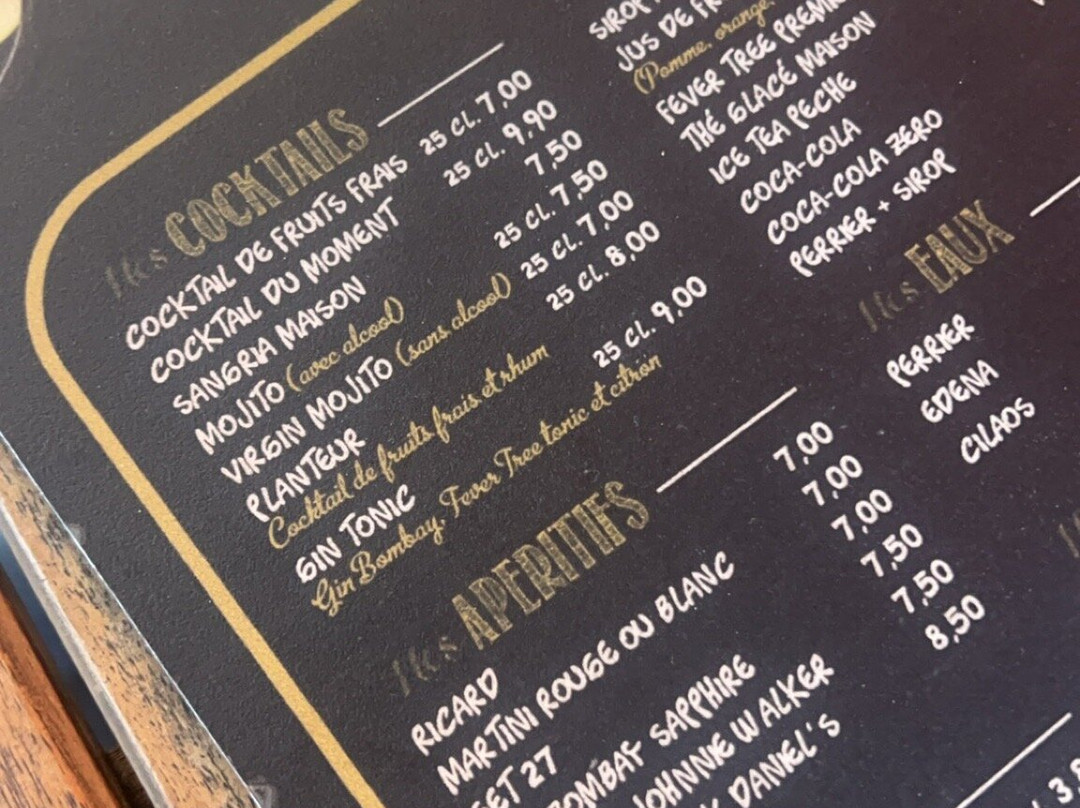 Nos COCKTAILS
COCKTAIL DE FRUITS FRAIS 25 CL. 7,00
COCKTAIL DU MOMENT 25 CL. 9,90
SANGRIA MAISON 7,50
MOJITO (avec alcool) 25 CL. 7,50
VIRGIN MOJITO (sans alcool) 25 CL. 7,00
PLANTEUR 25 CL. 8,00
Cocktail de fruits frais et rhum
GIN TONIC 25 CL. 9,00
Gin Bombay, Fever Tree tonic et citron
Nos APERITIFS
RICARD 7,00
MARTINI ROUGE OU BLANC 7,00
GET 27 7,00
BOMBAY SAPPHIRE 7,50
JOHNNIE WALKER 7,50
DANIEL'S 8,50
SIROP
JUS DE
(Pomme, orange,
FEVER TREE
THÉ GLACÉ MAISON
ICE TEA PECHE
COCA-COLA
COCA-COLA ZERO
PERRIER + SIROP
Nos EAUX
PERRIER
EDENA
CILAOS